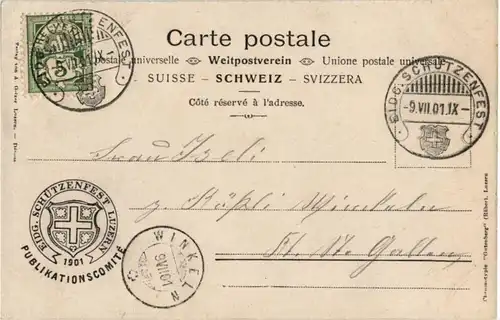 Carte postale
Union postale universelle Weltpostverein Unione postale universale
SUISSE – SCHWEIZ – SVIZZERA
Côté réservé à l'adresse.
EIDG. SCHÜTZENFEST
-9.VII.01.IX-
5
Frau Iseli
z. Rößli Winkeln
Kt. St. Gallen
EIDG. SCHÜTZENFEST LUZERN
1901
PUBLIKATIONSCOMITÉ
WINKELN